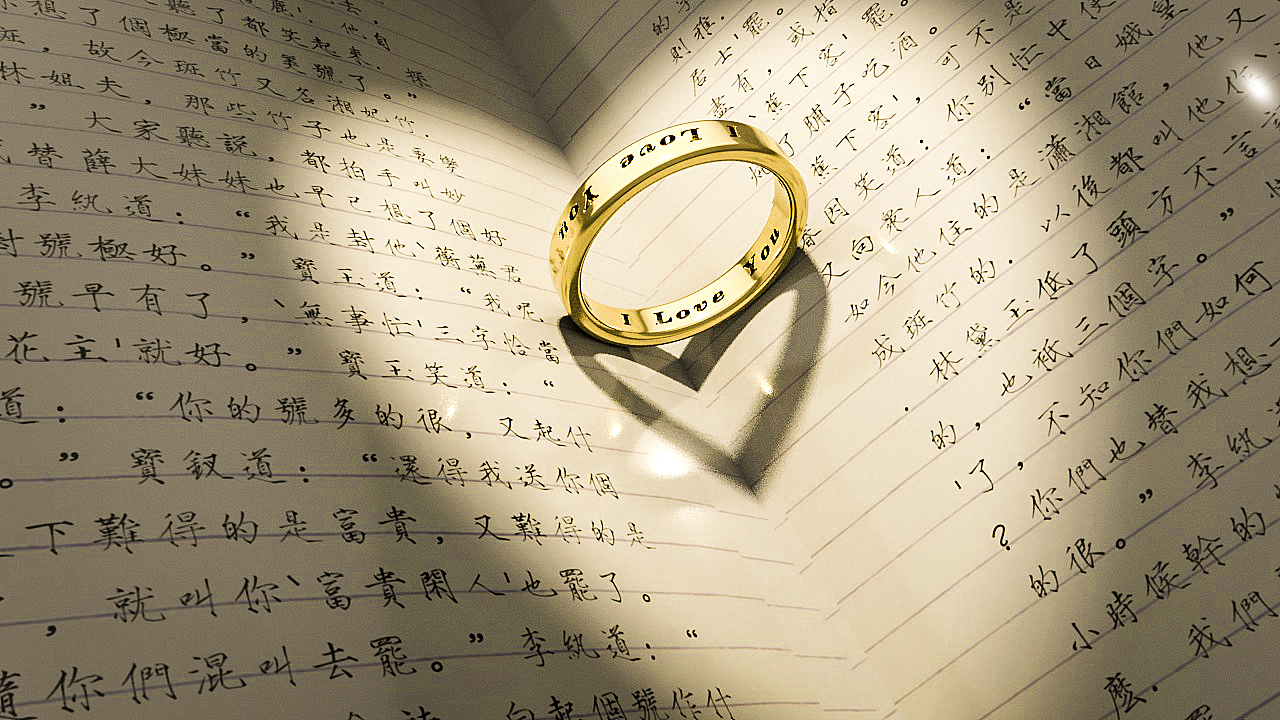 了個極當的美號了。”
斑，故今斑竹又名湘妃竹.
林姐夫，那些竹子也是要變
”大家聽說，都拍手叫妙
替薛大妹妹也早已想了個好
李紈道：“我是封他'蘅蕪君
封號極好。”寶玉道：“我呢
號早有了，'無事忙'三字恰當
花主'就好。”寶玉笑道：“
道：“你的號多的很，又起什
。”寶釵道：“還得我送你個
下難得的是富貴，又難得的是
，就叫你'富貴閑人'也罷了。
隨你們混叫去罷。”李紈道：“
起個號作什
居士'罷。
盡有，
'蕉下客'罷。
了脯子吃酒。
'蕉下客'，
可不是
因笑道：你別忙中使
又向衆人道：“當日娥皇
如今他住的是瀟湘館，他又
成斑竹的.以後都叫他作'
林黛玉低了頭方不言
的，也衹三個字。”
'了，不知你們如何
？你們也替我想一
的很。”李紈
小時候幹的
麽.我們
I Love You
I Love You